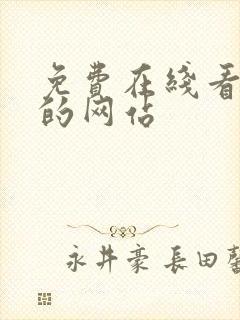 免費在綫看
的网站
永井豪 長田馨